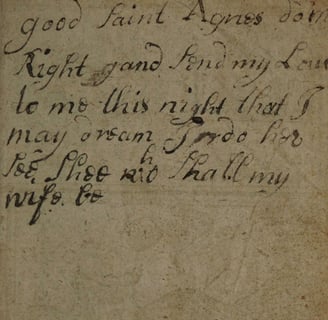 good saint Agnes do m
Right and send my Lov
to me this night that I
may dream I do her
see Shee who shall my
wife be